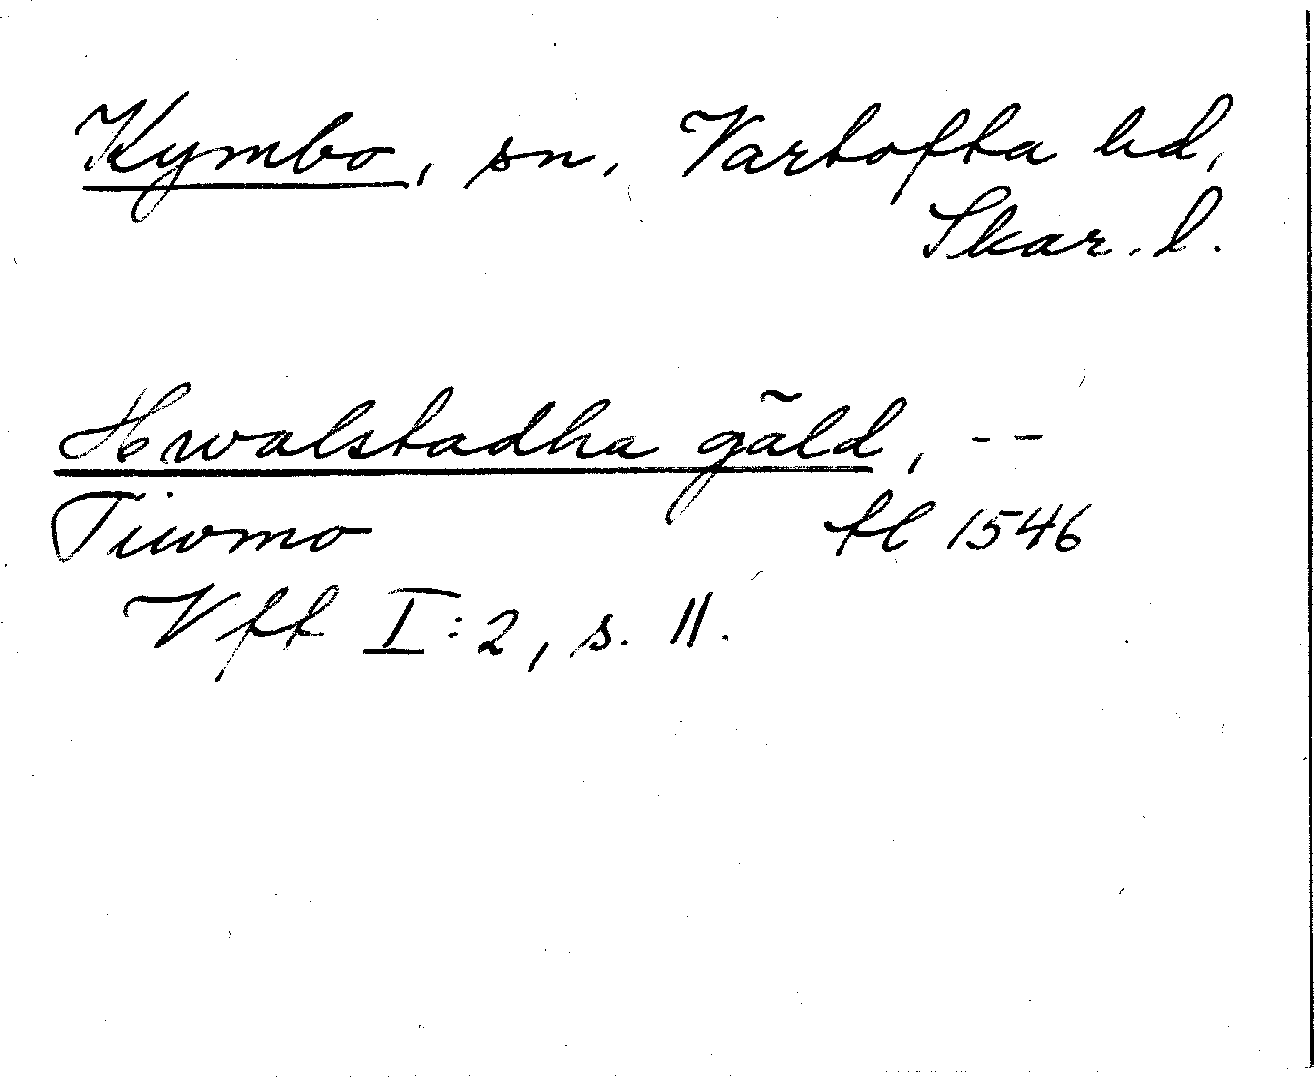 Kymbo, sn, Vartofta hd,
Skar. l.
Hwalstadha gäld, --
Tiwmo tl 1546
Vff I:2, s. 11.